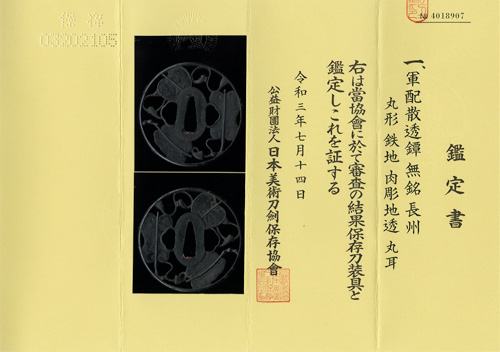 № 4018907
鑑定書
一、軍配散透鐔 無銘 長州
丸形 鉄地 肉彫地透 丸耳
右は當協會に於て審査の結果保存刀装具と
鑑定しこれを証する
令和三年七月十四日
公益財團法人 日本美術刀劍保存協會
保存
03202105